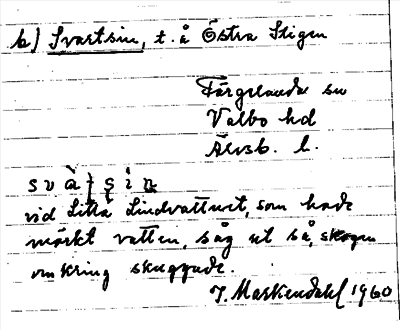 b) Svartsin, t. å Östra Stigen
Färgelanda sn
Valbo hd
Älvsb. l.
svàʈ ʂìn
vid Lilla Lindvattnet, som hade
mörkt vatten, såg ut så, skogen
omkring skuggade.
J. Markendahl 1960